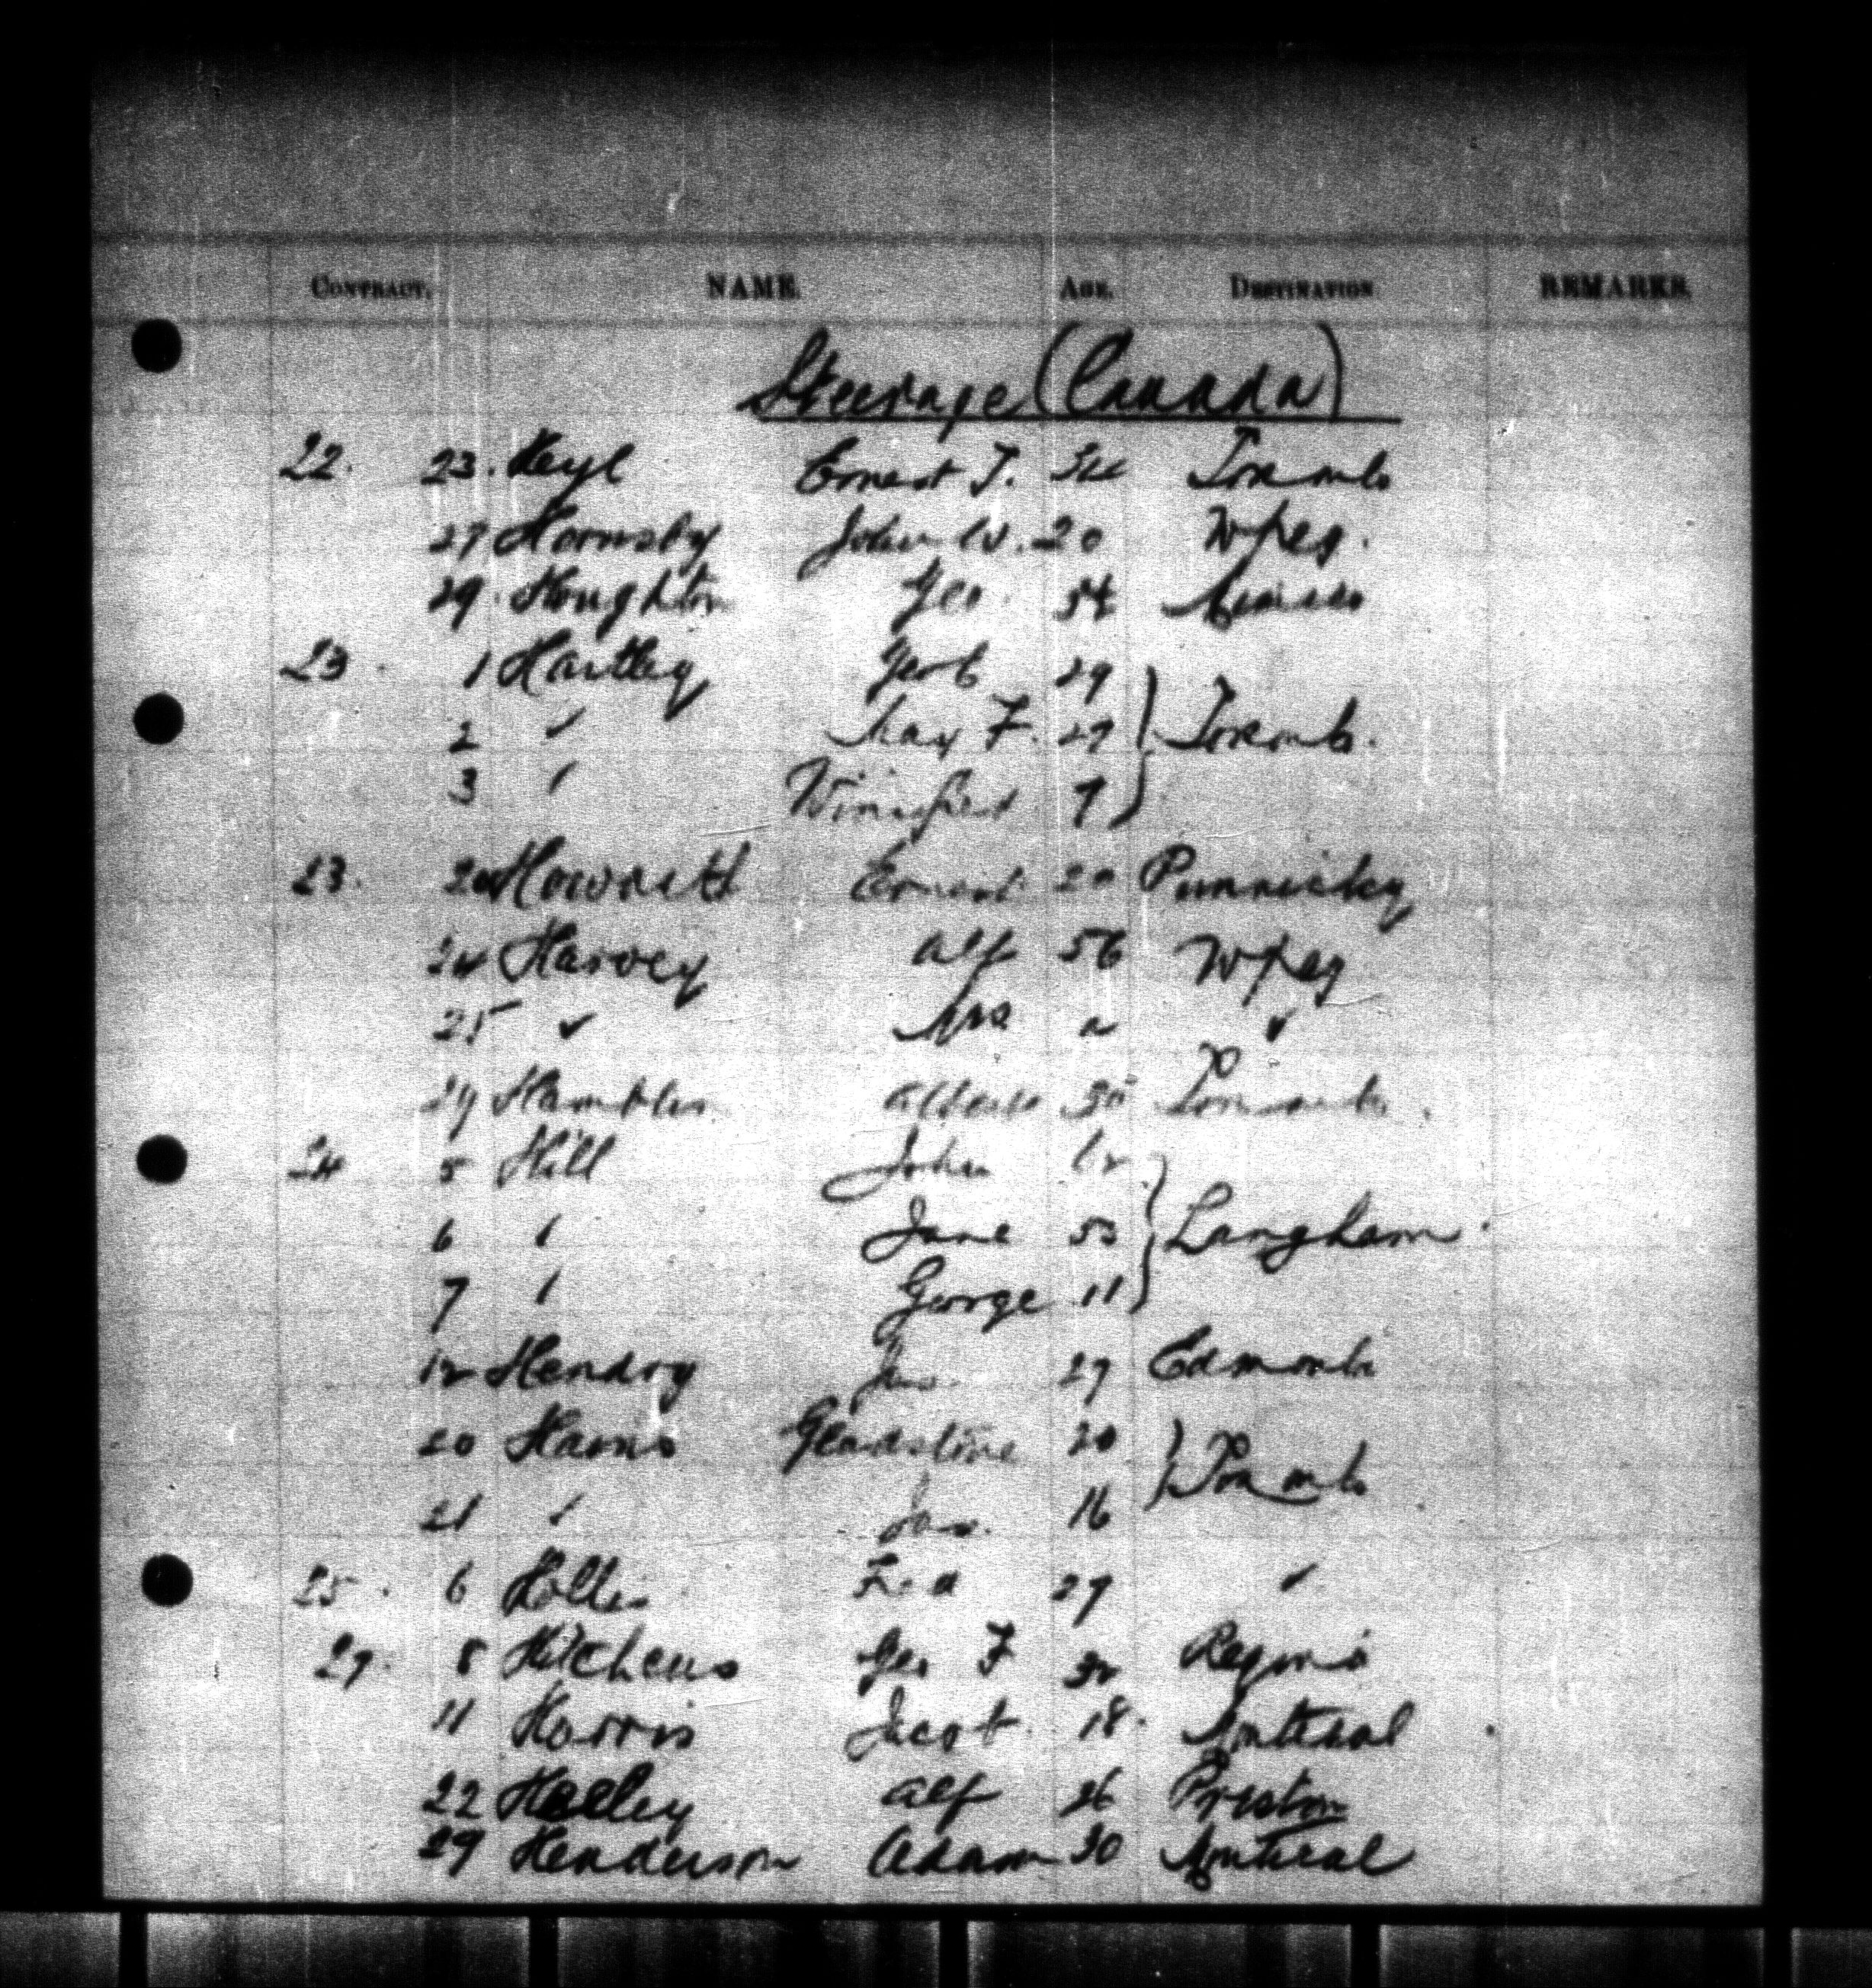 CONTRACT. NAME. AGE. DESTINATION REMARKS.
Steerage (Canada)
22. 23. Heyl Ernest T. 34 Toronto
27 Hornsby John W. 20 Wpeg.
29. Houghton Geo 54
23. 1 Hartley 29
2 " May F. 27 } Toronto.
3 " Winifred 7
23. Howorth Ernest 20 Punnichy
24 Harvey Alf 56 Wpeg
25 " Mrs a "
29 Albert 30 Toronto.
24 5 Hill John
6 " Jane 53 } Langham.
7 " George 11
12 Hendry Jas. 27 Edmonton
20 Harris Gladstone 20 } Toronto
21 " Jas. 16
25. 6 Hollis Fred 27 "
27. 8 Hitchens Geo F 32 Regina
11 Harris Jacob. 18. Montreal
22 Alf 26 Preston
29 Henderson Adam 30 Montreal